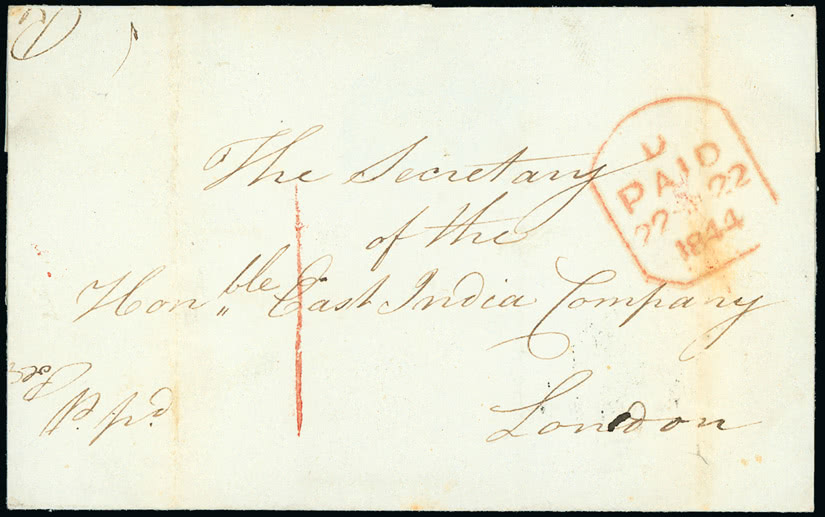 The Secretary
of the
Hon,,ble East India Company
London
p. pd.
U
PAID
22 22
1844